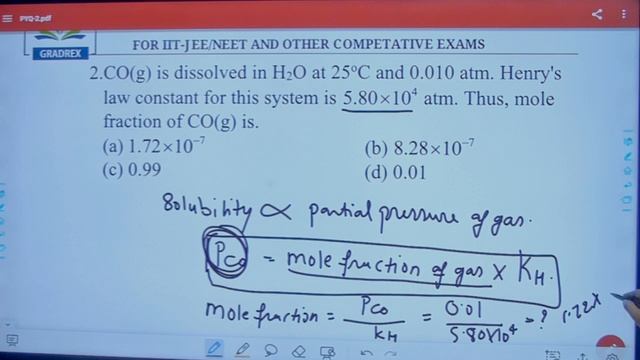 PYQ-2.pdf
GRADREX
FOR IIT-JEE/NEET AND OTHER COMPETATIVE EXAMS
2.CO(g) is dissolved in H₂O at 25°C and 0.010 atm. Henry's
law constant for this system is 5.80×10⁴ atm. Thus, mole
fraction of CO(g) is.
(a) 1.72×10⁻⁷ (b) 8.28×10⁻⁷
(c) 0.99 (d) 0.01
Solubility ∝ partial pressure of gas.
Pco = mole fraction of gas × KH.
mole fraction = Pco / KH = 0.01 / 5.80×10⁴ = ? 1.72×